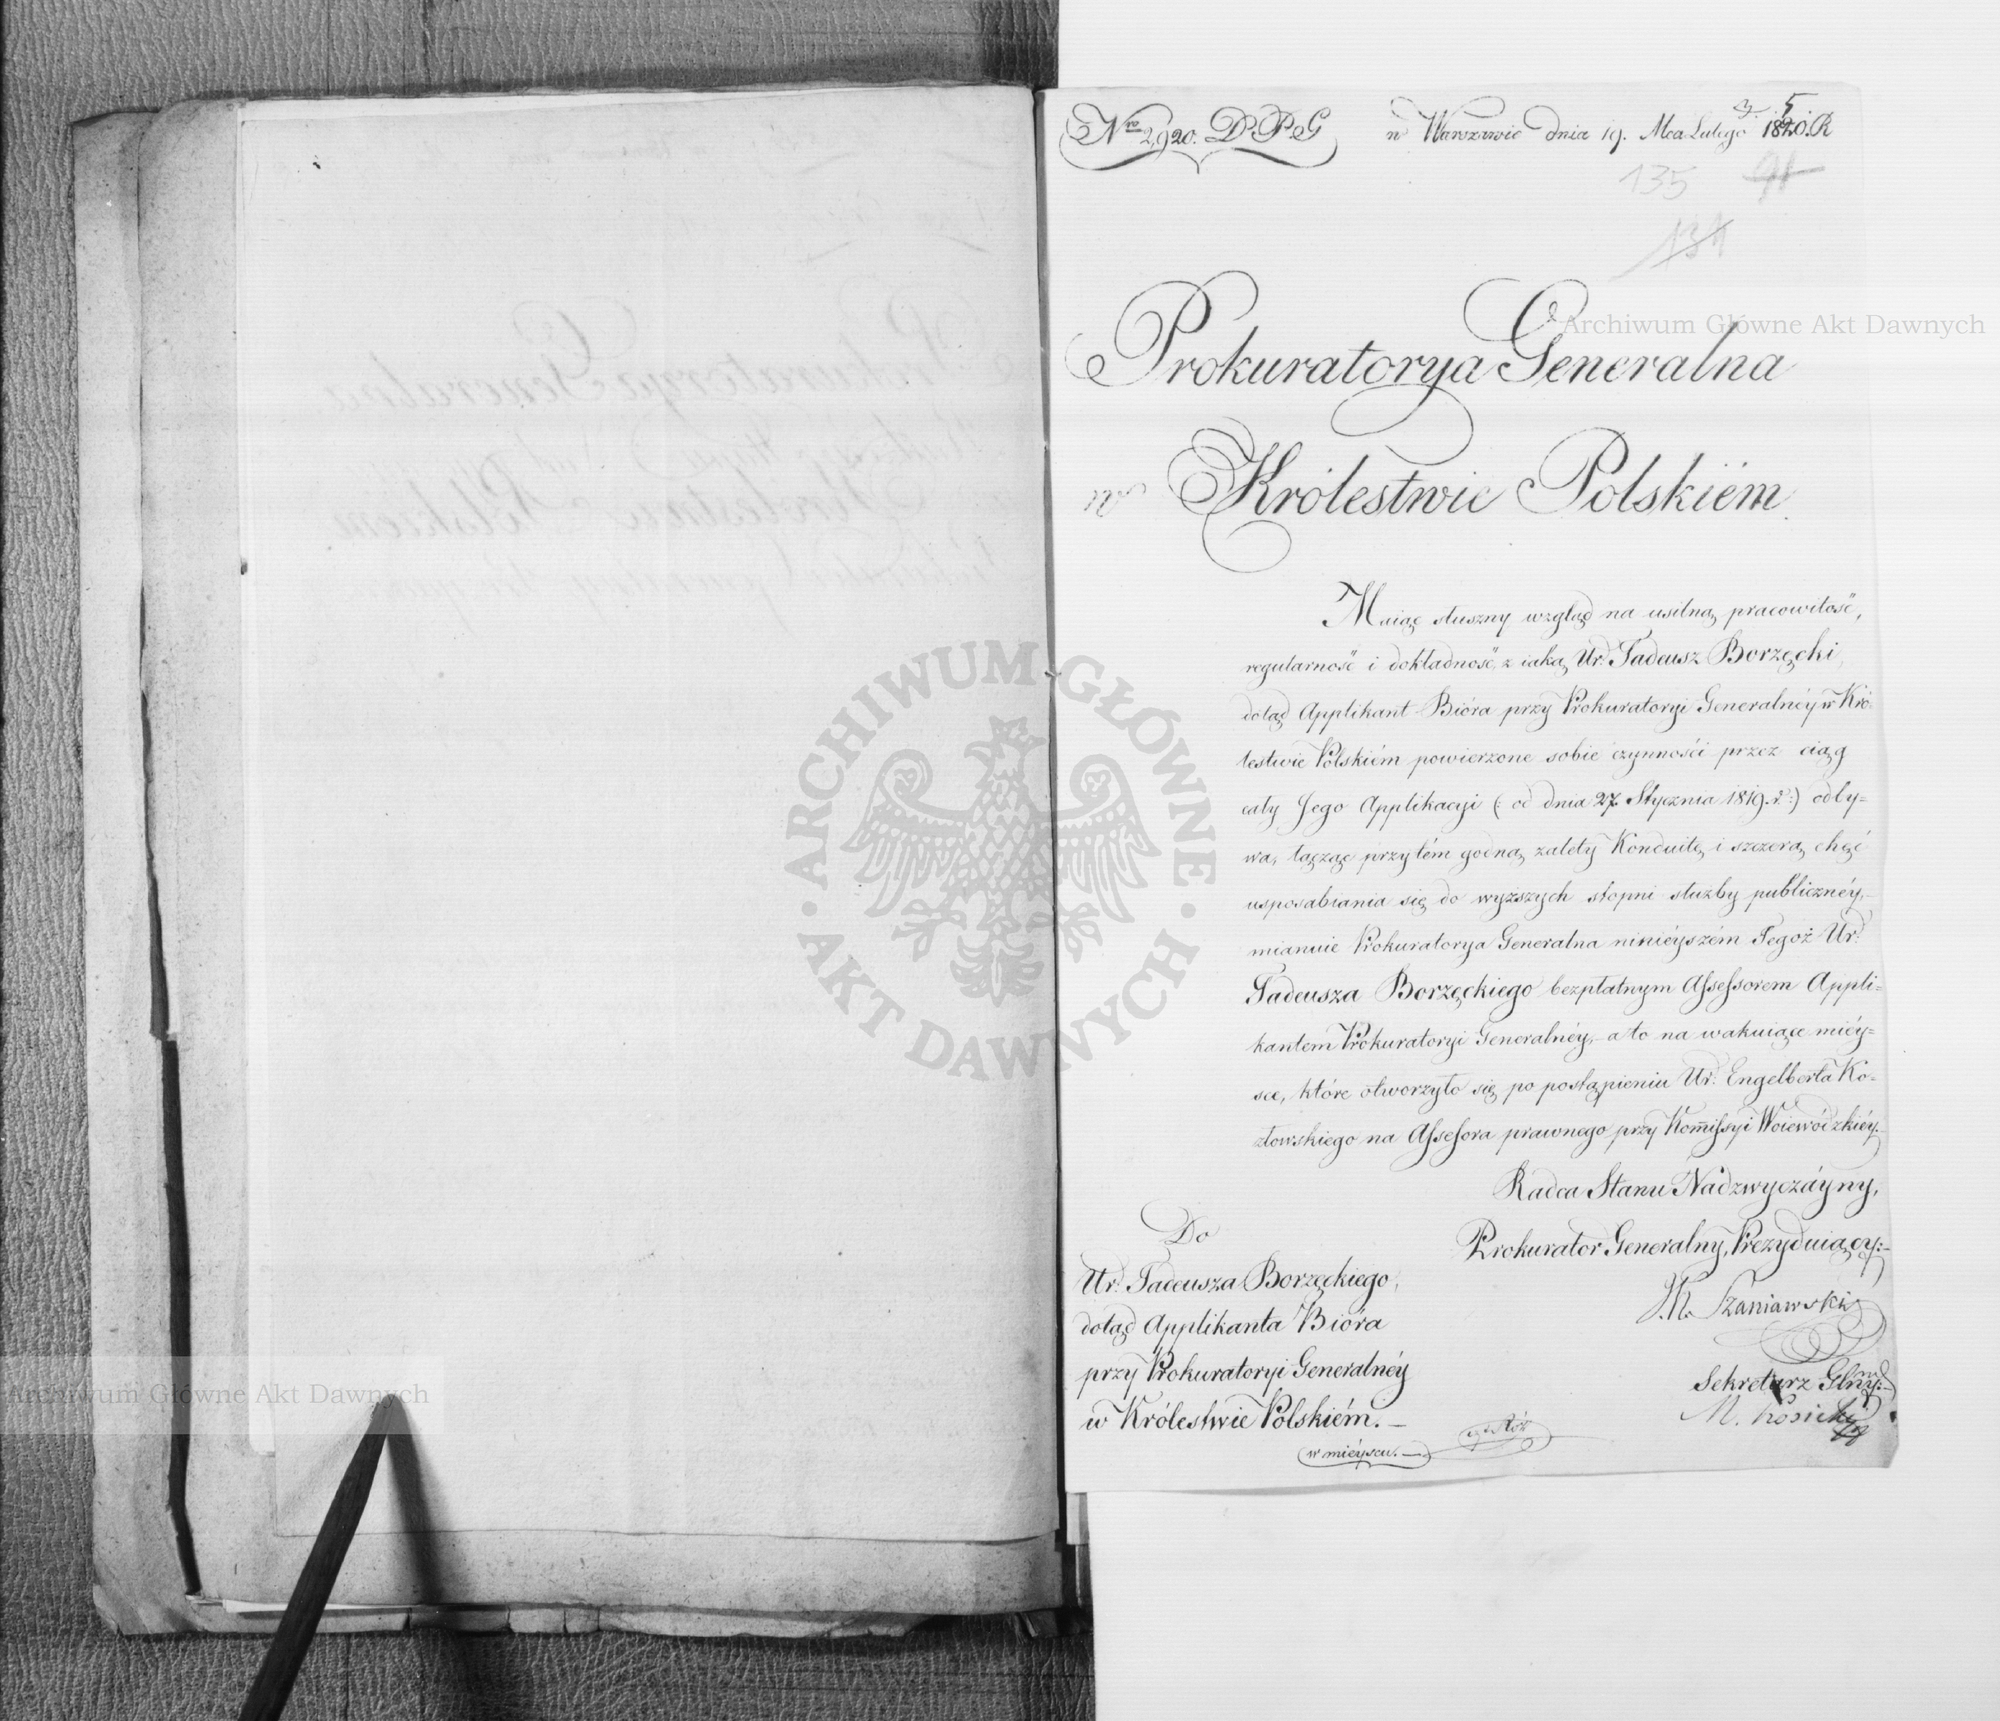 Nro 2,920. D.P.G
w Warszawie dnia 19. Mca Lutego 1820. R
5
135 91
134
Prokuratorya Generalna
w Królestwie Polskiém
Maiąc słuszny wzgląd na usilną pracowitość,
regularność i dokładność, z iaką Ur. Tadeusz Borzęcki,
dotąd Applikant Bióra przy Prokuratoryi Generalnéy w Kró-
lestwie Polskiém powierzone sobie czynności przez ciąg
cały Jego Applikacyi (: od dnia 27. Stycznia 1819. r. :) odby-
wa, łącząc przytém godną zalety Konduitę i szczerą chęć
usposabiania się do wyższych stopni służby publicznéy,-
mianuie Prokuratorya Generalna ninieyszém Tegoż Ur.
Tadeusza Borzęckiego bezpłatnym Assessorem Appli-
kantem Prokuratoryi Generalnéy,- a to na wakuiące miéy-
sce, które otworzyło się po postąpieniu Ur. Engelberta Ko-
złowskiego na Assesora prawnego przy Kommissyi Woiewódzkiéy.
Radca Stanu Nadzwyczáyny,
Prokurator Generalny, Prezyduiący:-
J.K. Szaniawski
Sekretarz Glny:-
M. Kosicki
Do
Ur. Tadeusza Borzęckiego,
dotąd Applikanta Bióra
przy Prokuratoryi Generalnéy
w Królestwie Polskiém.-
w miéyscu.-
Archiwum Główne Akt Dawnych
ARCHIWUM GŁÓWNE · AKT DAWNYCH ·
Archiwum Główne Akt Dawnych